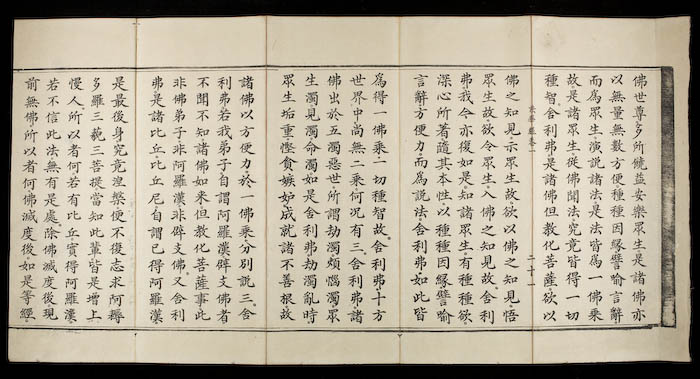 佛世尊多所饒益安樂眾生是諸佛亦
以無量無數方便種種因緣譬喻言辭
而爲眾生演說諸法是法皆爲一佛乘
故是諸眾生從佛聞法究竟皆得一切
種智舍利弗是諸佛但教化菩薩欲以
法華經卷一 二十
佛之知見示眾生故欲以佛之知見悟
眾生故欲令眾生入佛之知見故舍利
弗我今亦復如是知諸眾生有種種欲
深心所著隨其本性以種種因緣譬喻
言辭方便力而爲說法舍利弗如此皆
爲得一佛乘一切種智故舍利弗十方
世界中尚無二乘何況有三舍利弗諸
佛出於五濁惡世所謂劫濁煩惱濁眾
生濁見濁命濁如是舍利弗劫濁亂時
眾生垢重慳貪嫉妬成就諸不善根故
諸佛以方便力於一佛乘分別說三舍
利弗若我弟子自謂阿羅漢辟支佛者
不聞不知諸佛如來但教化菩薩事此
非佛弟子非阿羅漢非辟支佛又舍利
弗是諸比丘比丘尼自謂已得阿羅漢
是最後身究竟涅槃便不復志求阿耨
多羅三藐三菩提當知此輩皆是增上
慢人所以者何若有比丘實得阿羅漢
若不信此法無有是處除佛滅度後現
前無佛所以者何佛滅度後如是等經